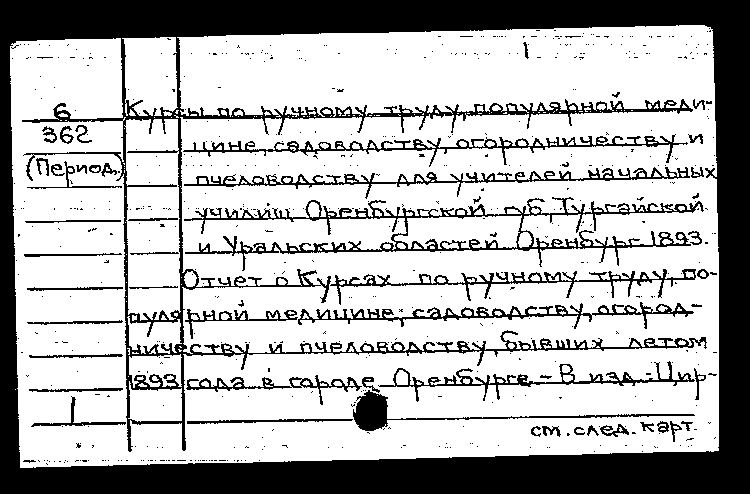 6
362
(Период.)
Курсы по ручному труду, популярной меди-
цине, садоводству, огородничеству и
пчеловодству для учителей начальных
училищ Оренбургской губ, Тургайской
и Уральских областей Оренбург 1893.
Отчет о Курсах по ручному труду, по-
пулярной медицине; садоводству, огород-
ничеству и пчеловодству, бывших летом
1893 года в городе Оренбурге. - В изд.: Цир-
см. след. карт.